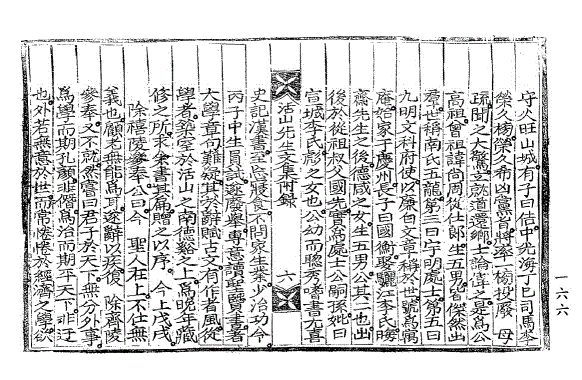 守火旺山城有子曰信中先海丁巳司馬參
榮久楊榮久希凶黨皆將率一楊投廢　母
疏聞之大驚 還鄉士論韙之是爲公
高祖曾祖諱尚周從仕郎生五男皆傑然出
群世稱南氏五龍第三曰宇明處士第五曰
九明文科府使以廉白文章稱於世號寓
庵始家于慶州長子曰國衡娶驪江李氏晦
齋先生之後德咸之女生五男公其二也出
後於從祖叔父國先 窩處士公嗣孫妣曰
宣城李氏彪之女也公幼而聰秀嗜書尤喜
活山先生文集附錄　六
史記漢書至忘寢食不問家生業少治功令
丙子中生員試遂廢舉專意讀聖賢書著
大學章句難疑其於辭賦古文有作者風從
學者築室於活山之南德谿之上爲晚年藏
修之所求余書其扁贈之以序　今上戊戌
除禧陵參奉公曰今　聖人在上不仕無
義也顧老無能爲耳遂辭以疾後　除齊陵
參奉又不就然嘗曰君子於天下無分外事
爲學而期孔顏非僭爲治而期平天下非迂
也外若無意於世而常惓惓於經濟之學欲
一六六